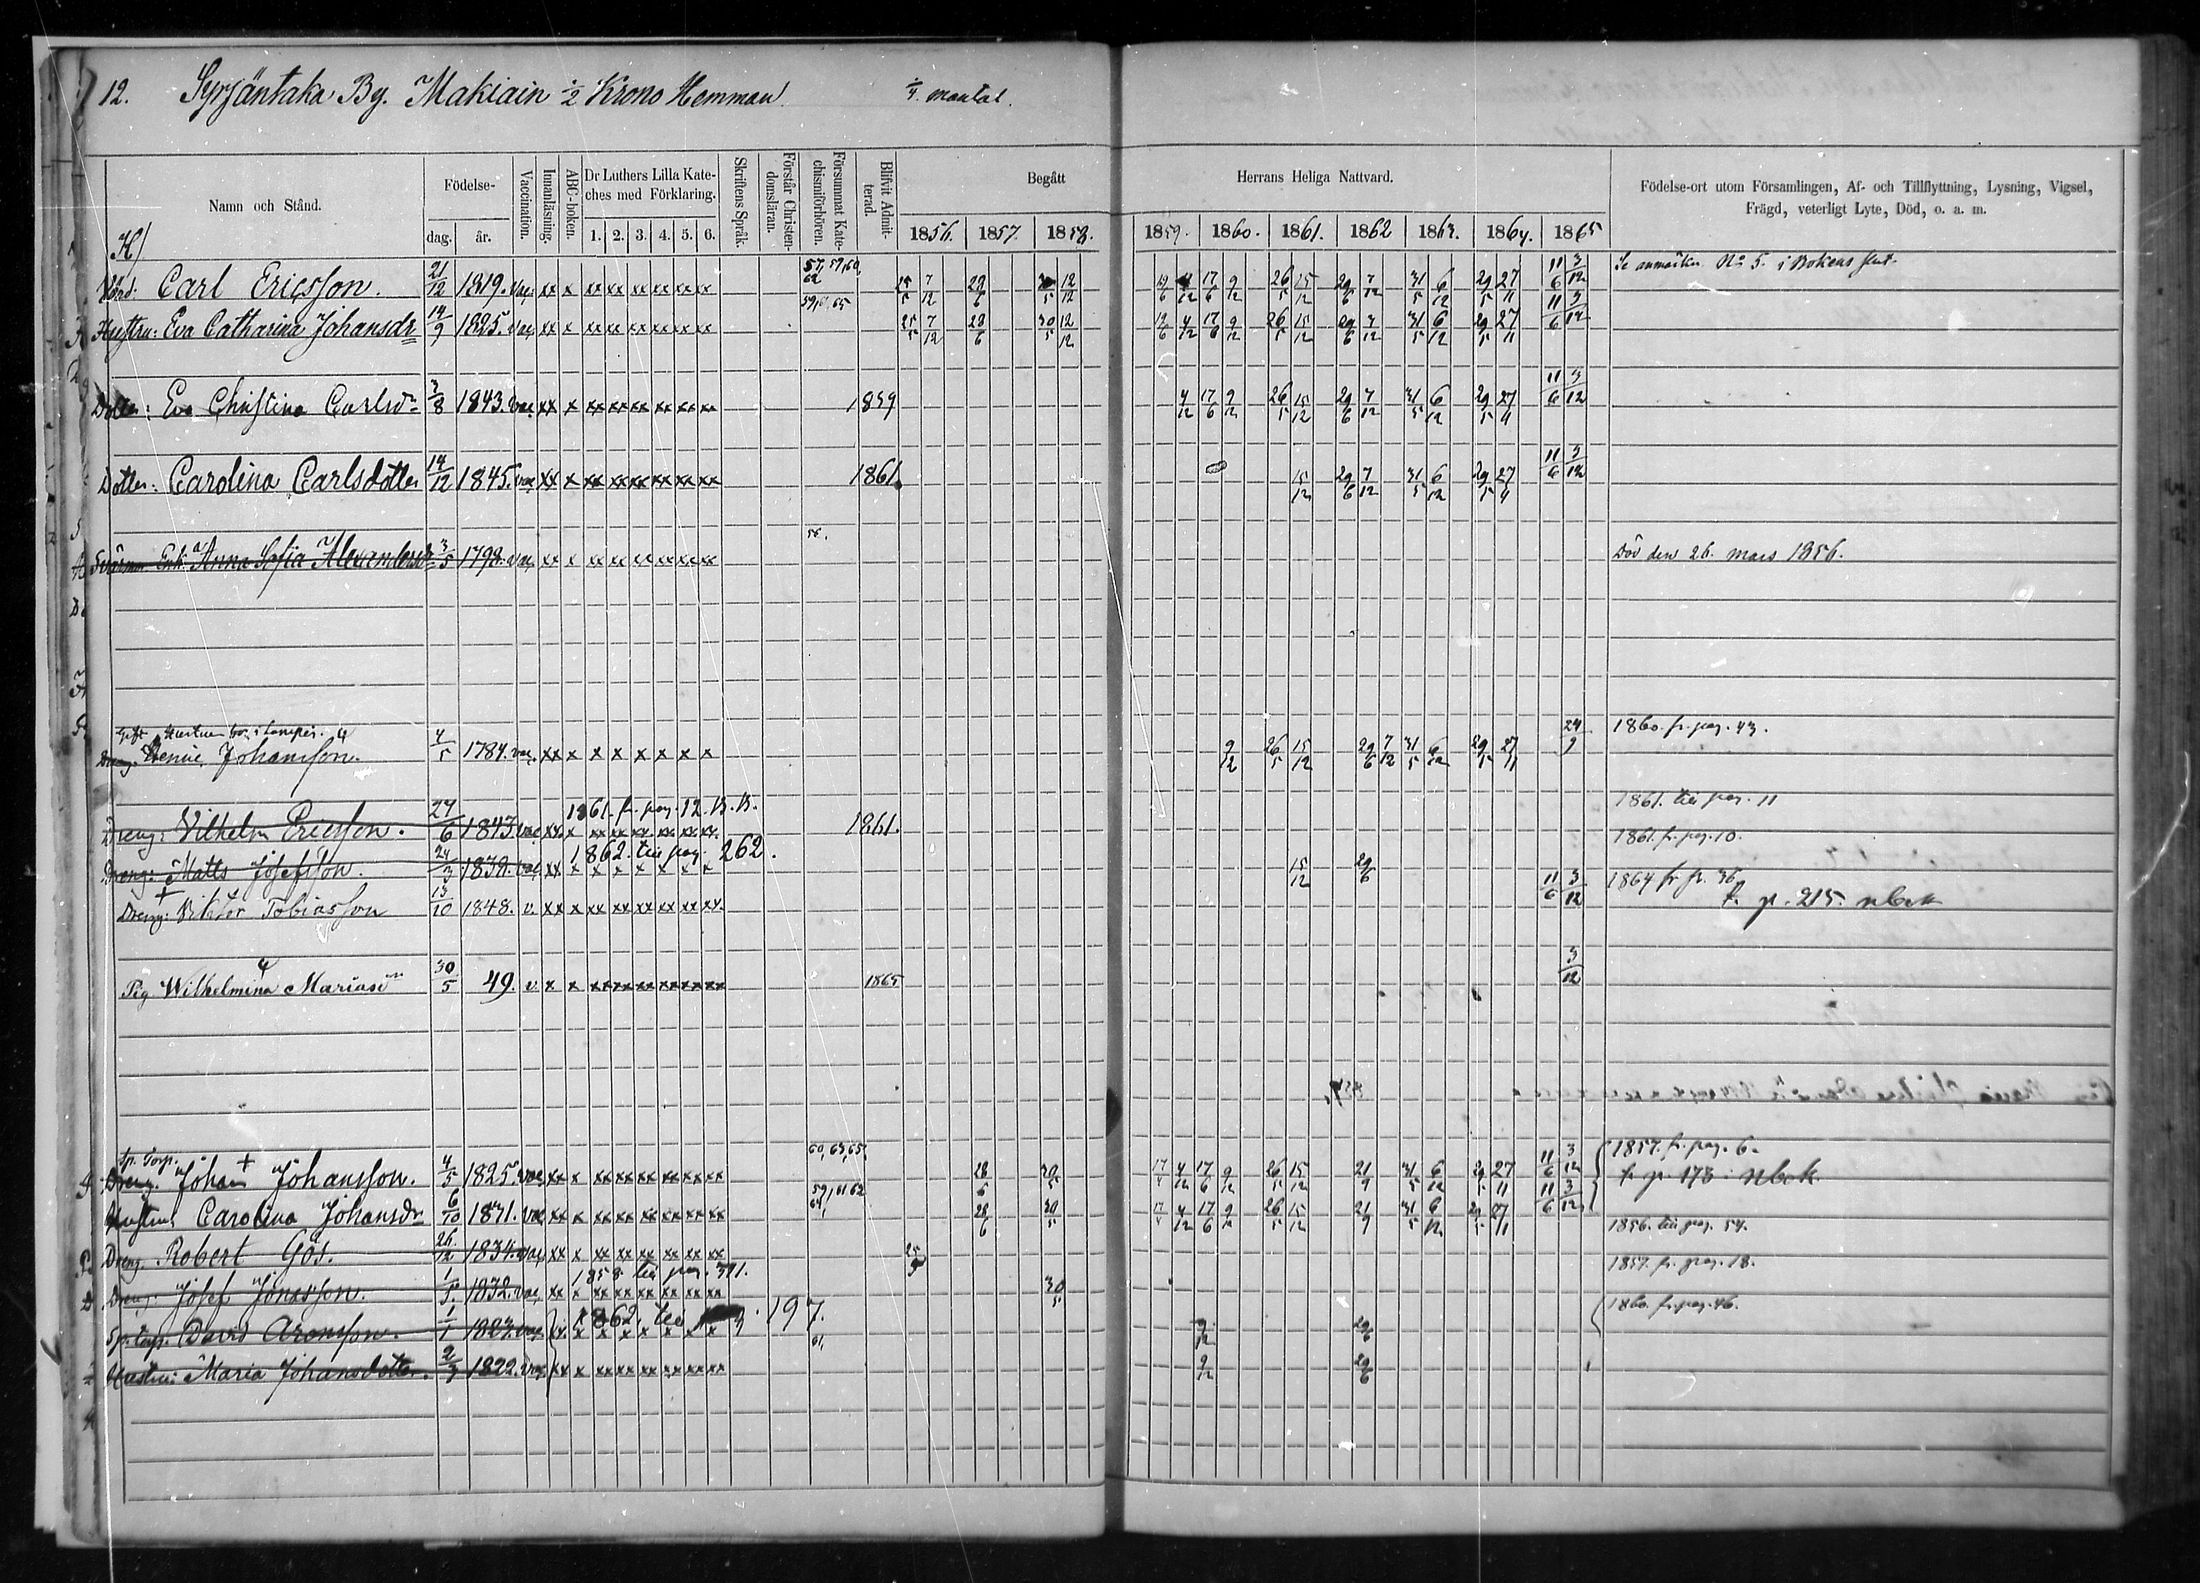 12. Syrjäntaka By. Makiain 1/2 Krono Hemman. 1/4 mantal.
Namn och Stånd. Födelse- Vaccination. Innanläsning. ABC-boken. Dr Luthers Lilla Kateches med Förklaring. Skriftens Språk. Förstår Christendomsläran. Försummat Katechismiförhören. Blifvit Admitterad. Begått Herrans Heliga Nattvard. Födelse-ort utom Församlingen, Af- och Tillflyttning, Lysning, Vigsel, Frägd, veterligt Lyte, Död, o. a. m.
dag. år. 1. 2. 3. 4. 5. 6. 1856. 1857. 1858. 1859. 1860. 1861. 1862 1863. 1864. 1865
H/
Carl Ericsson. 21/12 1819. vac. xx x xx xx xx xx xx xx 57, 59, 60, 62 25/5 7/12 12/12 17/6 9/12 26/5 15/12 29/6 7/12 31/5 6/12 29/5 27/11 11/6 3/12 Se anmärkn. No 5. i Bokens slut.
Hustru: Eva Catharina Johansdr 14/9 1825. vac. xx x xx xx xx xx xx xx 25/5 7/12 28/6 30/5 12/12 12/6 4/12 17/6 9/12 26/5 15/12 31/5 6/12 29/5 27/11 11/6 3/12
Dotter: Eva Christina Carlsdr 3/8 1843. vac. xx x xx xx xx xx xx xx 1859 4/12 17/6 9/12 26/5 15/12 29/6 7/12 31/5 6/12 29/5 27/11 11/6 3/12
Dotter: Carolina Carlsdotter 14/12 1845. vac. xx x xx xx xx xx xx xx 1861. 15/12 29/6 7/12 31/5 6/12 29/5 27/11 11/6 3/12
Anna Sofia Alexandersdr 3/5 1798. vac. xx x xx xx xx xx xx xx 56. Död den 26. mars 1856.
Johansson. 4/5 1784. vac. xx x x x x x x x 9/12 26/5 15/12 29/6 7/12 31/5 6/12 29/5 27/11 24/9 1860. fr. pag. 43.
1861. fr. pag. 12. B. B. 1861. till pag. 11
Dreng: Vilhelm Ericsson. 24/6 1843. vac. xx x xx xx xx xx xx xx 1861.
1862. till pag. 262. 1861. fr. pag. 10.
Dreng: Matts Josefsson. 24/3 1838. vac. xx x x x x x x x 15/12 29/6
Dreng: Viktor Tobiasson 13/10 1848. v. xx x xx xx xx xx xx xx 11/6 3/12 1864 fr p. 36
t. p. 215. nbok
Pig Wilhelmina Mariasdr 30/5 49. v. x x xx xx xx xx xx xx 1865 3/12
Sp. Torp.
Dreng. Johan Johansson. 4/5 1825. vac. xx x xx xx xx xx xx xx 60, 63, 65, 28/6 30/5 17/4 4/12 17/6 9/12 26/5 15/12 21/9 31/5 6/12 29/5 27/11 11/6 3/12 1857. fr. pag. 6.
t. p. 173 i nbok
Hustru: Carolina Johansdr 6/10 1831. vac xx x xx xx xx xx xx xx 59, 61, 62 64, 28/6 30/5 17/4 4/12 17/6 9/12 26/5 15/12 21/9 31/5 6/12 29/5 27/11 11/6 3/12
Dreng. Robert Gös. 26/12 1834. vac. xx x xx xx xx xx xx xx 25/5 1856. till pag. 54.
1858. till pag. 391. 1857. fr. pag. 18.
Dreng: Josef Jonasson. 1/5 1832. vac. xx x xx xx xx xx xx xx 30/5
1862. till 197. 1860. fr. pag. 46.
Sp. torp. David Aronsson. 1/1 1823. vac. xx x x x x x x x 61, 9/12 29/6
Hustru: Maria Johansdotter. 2/3 1822. vac. xx x xx xx xx xx xx xx 9/12 29/6